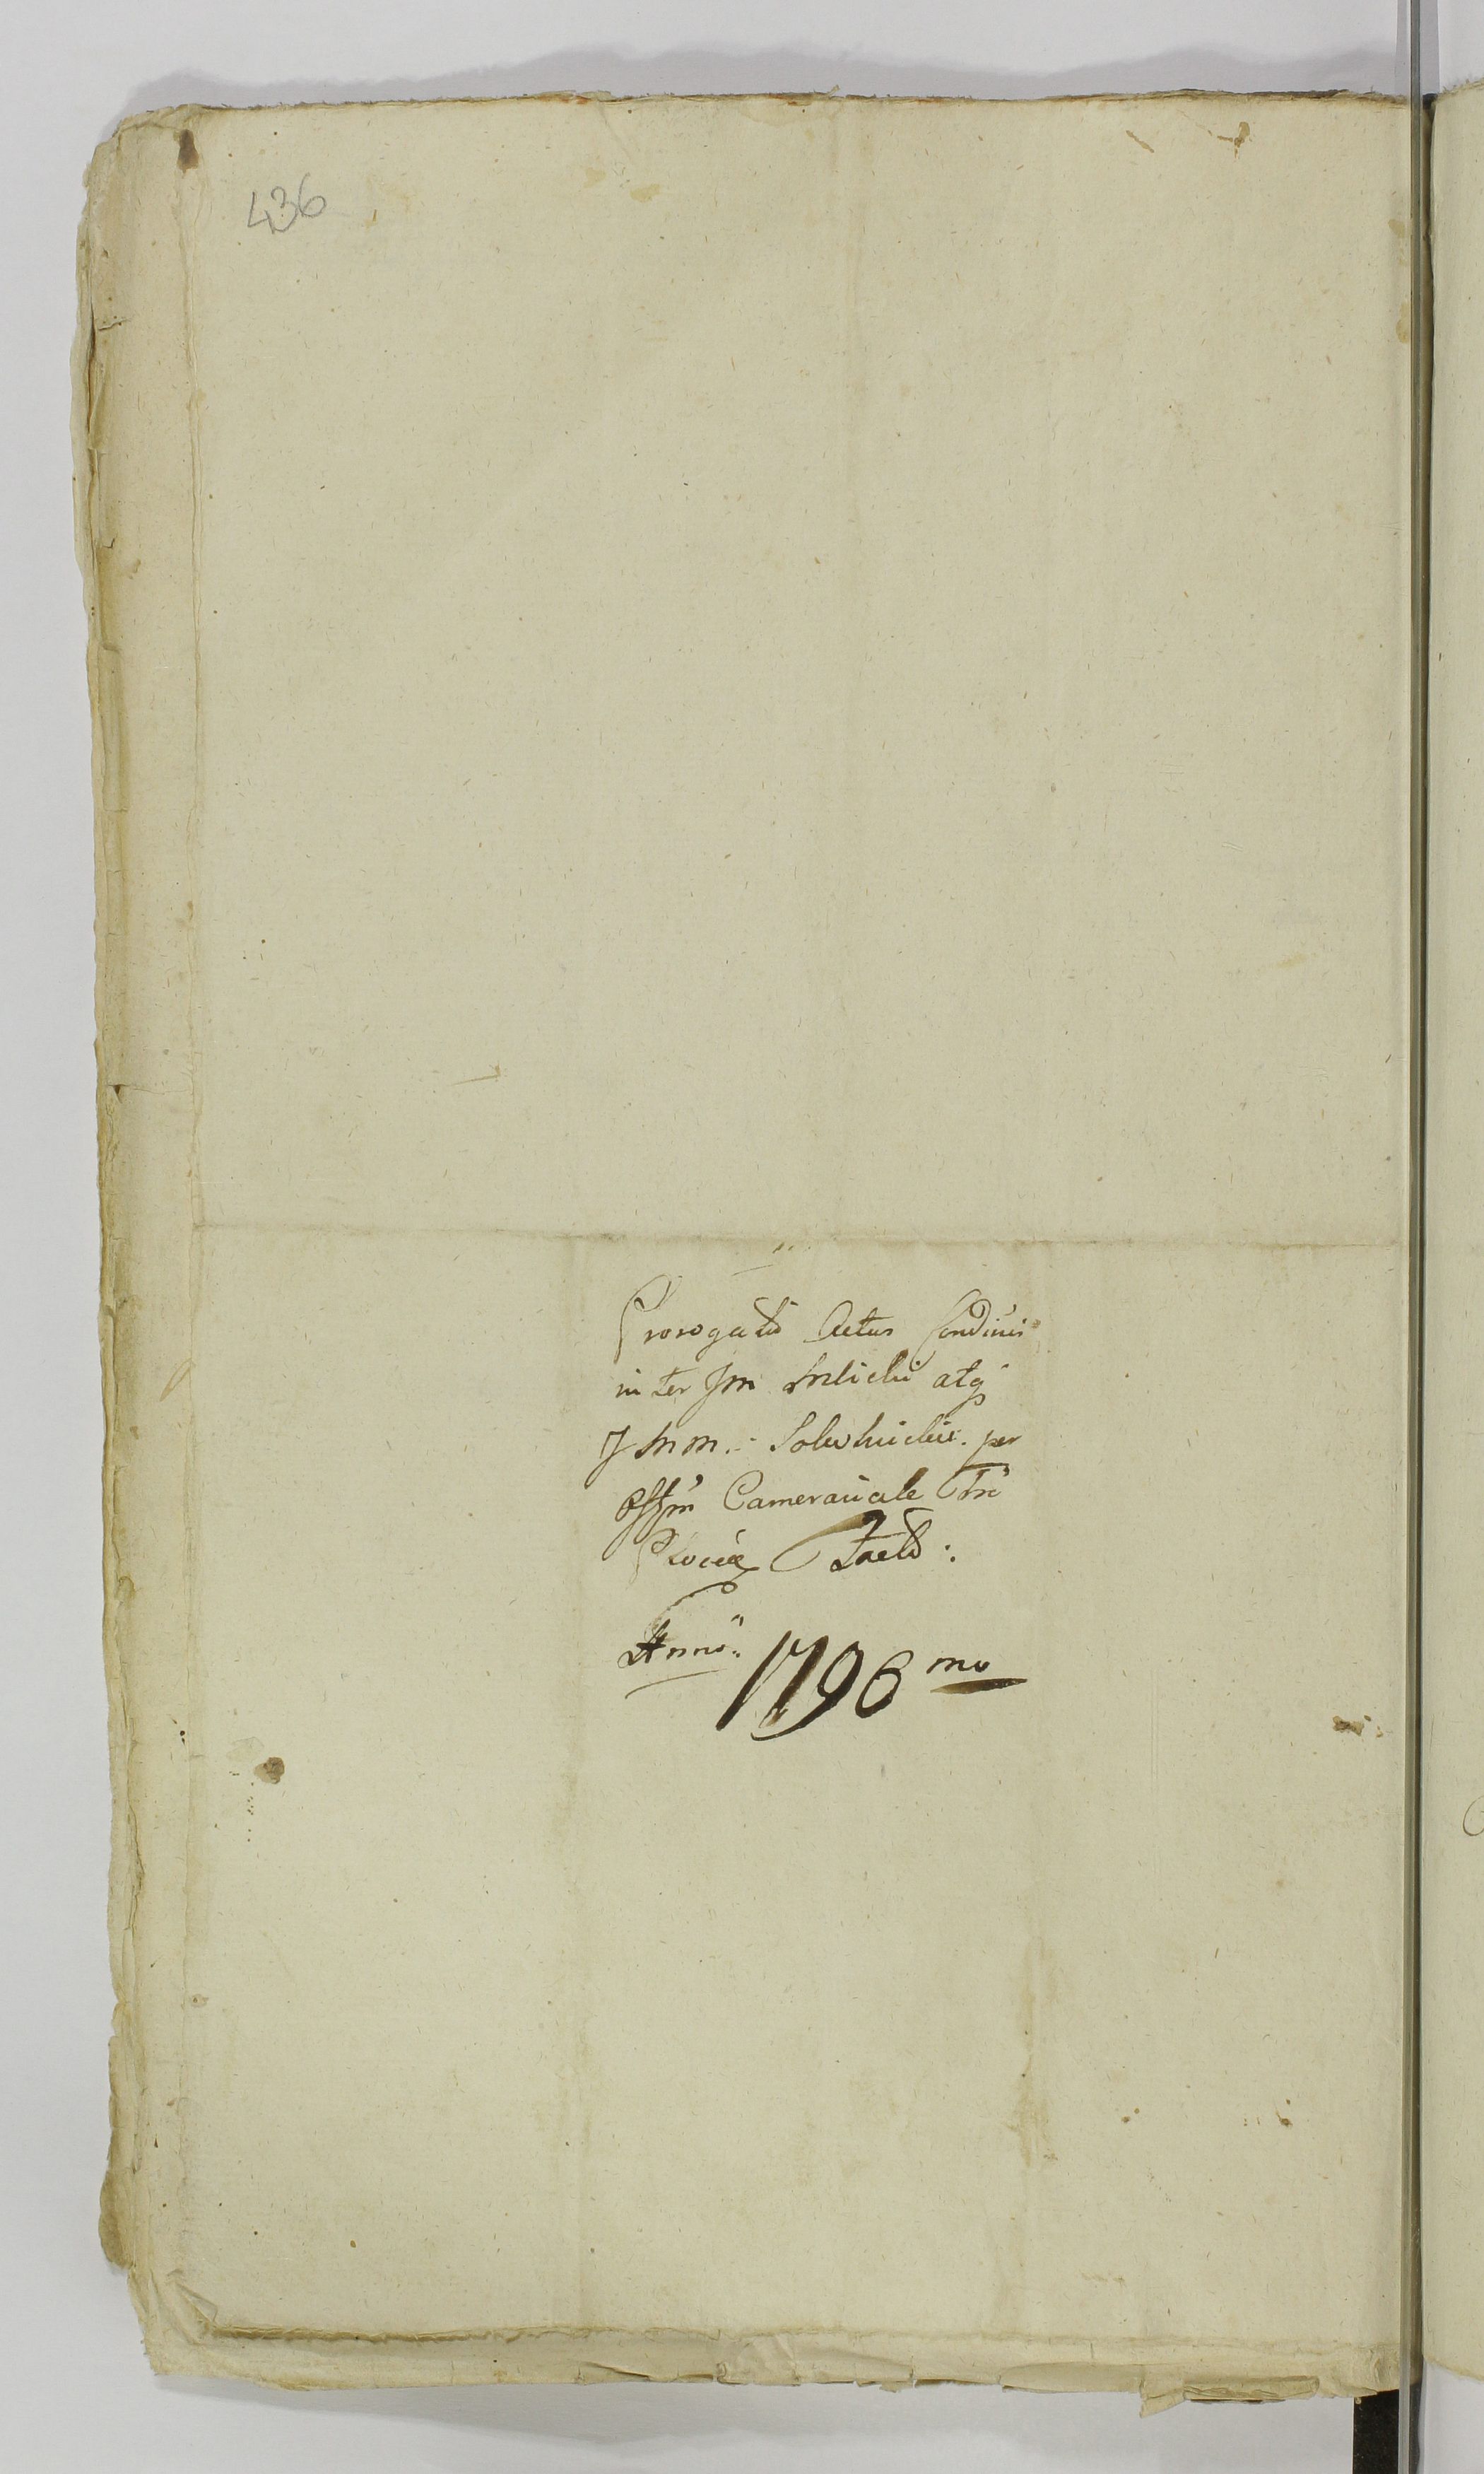 436
Prorogatio Actus Condivis
inter Jm Mlicki atq
J Mm. Solwhickie. per
Offm Cameraiale Tre
Plociae Facto:
Anno: 1796 mo